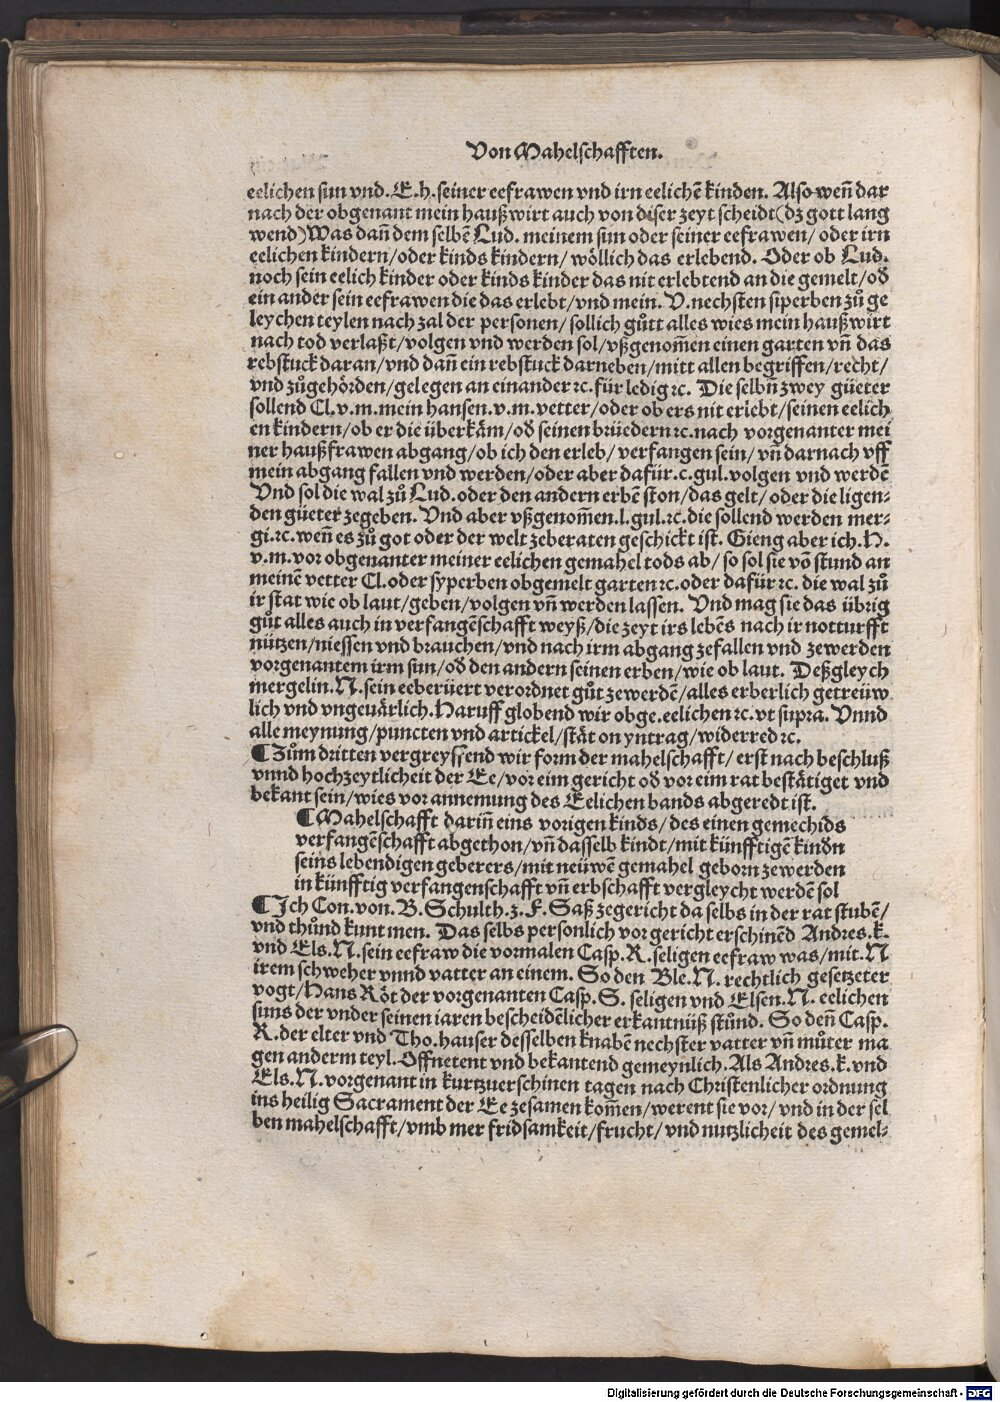 Von Mahelschafften.
eelichen sun vnd. E.h.seiner eefrawen vnd irn eelichē kinden. Also weñ dar
nach der obgenant mein haußwirt auch von diser zeyt scheidt(dz gott lang
wend)Was dañ dem selbē Lud. meinem sun oder seiner eefrawen/ oder irn
eelichen kindern/oder kinds kindern/ wöllich das erlebend. Oder ob Lud.
noch sein eelich kinder oder kinds kinder das nit erlebtend an die gemelt/od̄
ein ander sein eefrawen die das erlebt/vnd mein. V.nechsten siperben zů ge
leychen teylen nach zal der personen/ sollich gůtt alles wies mein haußwirt
nach tod verlaßt/volgen vnd werden sol/vßgenom̄en einen garten vñ das
rebstuck daran/vnd dañ ein rebstuck darneben/mitt allen begriffen/recht/
vnd zůgehörden/gelegen an einander ꝛc.für ledig ꝛc. Die selbñ zwey güeter
sollend Cl.v.m.mein hansen.v.m.vetter/oder ob ers nit erlebt/seinen eelich
en kindern/ob er die überkäm/od̄ seinen brüedern ꝛc.nach vorgenanter mei
ner haußfrawen abgang/ob ich den erleb/ verfangen sein/ vñ darnach vff
mein abgang fallen vnd werden/oder aber dafür.c.gul.volgen vnd werdē
Vnd sol die wal zů Lud.oder den andern erbē ston/das gelt/ oder die ligen⸗
den güeter zegeben. Vnd aber vßgenom̄en.l.gul.ꝛc.die sollend werden mer⸗
gi.ꝛc.weñ es zů got oder der welt zeberaten geschickt ist. Gieng aber ich.H.
v.m.vor obgenanter meiner eelichen gemahel tods ab/ so sol sie vō stund an
meinē vetter Cl.oder syperben obgemelt garten ꝛc.oder dafür ꝛc. die wal zů
ir stat wie ob laut/geben/volgen vñ werden lassen. Vnd mag sie das übrig
gůt alles auch in verfangēschafft weyß/die zeyt irs lebēs nach ir notturfft
nützen/niessen vnd brauchen/vnd nach irm abgang zefallen vnd zewerden
vorgenantem irm sun/od̄ den andern seinen erben/wie ob laut. Deßgleych
mergelin.N.sein eeberüert verordnet gůt zewerdē/alles erberlich getreüw
lich vnd vngeuärlich.Haruff globend wir obge.eelichen ꝛc.vt supra. Vnnd
alle meynung/puncten vnd artickel/stät on yntrag/widerred ꝛc.
¶Zům dritten vergreyffend wir form der mahelschafft/ erst nach beschluß
vnnd hochzeytlicheit der Ee/vor eim gericht od̄ vor eim rat bestätiget vnd
bekant sein/wies vor annemung des Eelichen bands abgeredt ist.
¶Mahelschafft dariñ eins vorigen kinds/des einen gemechids
verfangēschafft abgethon/vñ dasselb kindt/mit künfftigē kindn̄
seins lebendigen geberers/mit neüwē gemahel geborn zewerden
in künfftig verfangenschafft vñ erbschafft vergleycht werdē sol
¶Ich Con.von.B.Schulth.z.F.Saß zegericht da selbs in der rat stubē/
vnd thůnd kunt men. Das selbs personlich vor gericht erschinēd Andres.k.
vnd Els.N.sein eefraw die vormalen Casp.R.seligen eefraw was/mit.N
irem schweher vnnd vatter an einem. So den Ble.N.rechtlich gesetzeter
vogt/Hans Röt der vorgenanten Casp.S. seligen vnd Elsen.N. eelichen
suns der vnder seinen iaren bescheidēlicher erkantnüß stůnd. So deñ Casp.
R.der elter vnd Tho.hauser desselben knabē nechster vatter vñ můter ma
gen anderm teyl.Offnetent vnd bekantend gemeynlich.Als Andres.k.vnd
Els.N.vorgenant in kurtzuerschinen tagen nach Christenlicher ordnung
ins heilig Sacrament der Ee zesamen kom̄en/werent sie vor/ vnd in der sel
ben mahelschafft/vmb mer fridsamkeit/frucht/ vnd nutzlicheit des gemel⸗
Digitalisierung gefördert durch die Deutsche Forschungsgemeinschaft - DFG